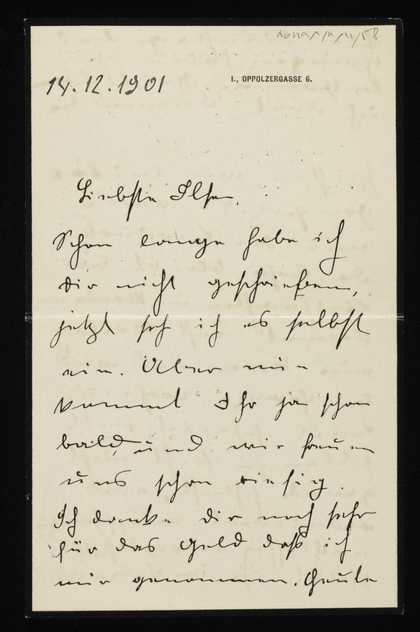 14.12.1901
I., OPPOLZERGASSE 6.
Liebste Ilse,
Schon lange habe ich
dir nicht geschrieben,
jetzt seh ich es selbst
ein. Aber nun
kommt Ihr ja schon
bald, und wir freuen
uns schon riesig.
Ich danke dir noch sehr
für das Geld daß ich
mir genommen. Heute